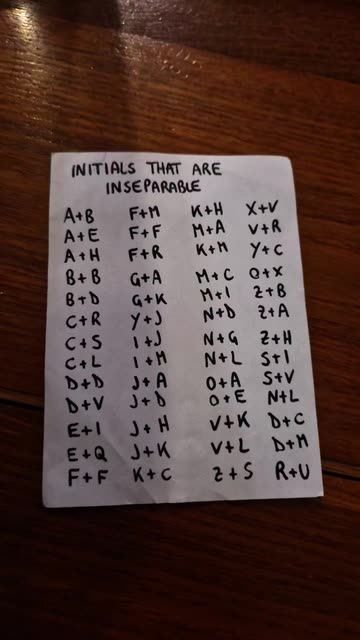 INITIALS THAT ARE
INSEPARABLE
A+B F+M K+H X+V
A+E F+F M+A V+R
A+H F+R K+M Y+C
B+B G+A M+C O+X
B+D G+K M+I Z+B
C+R Y+J N+D Z+A
C+S I+J N+G Z+H
C+L I+M N+L S+I
D+D J+A O+A S+V
D+V J+D O+E N+L
E+I J+H V+K D+C
E+Q J+K V+L D+M
F+F K+C Z+S R+U